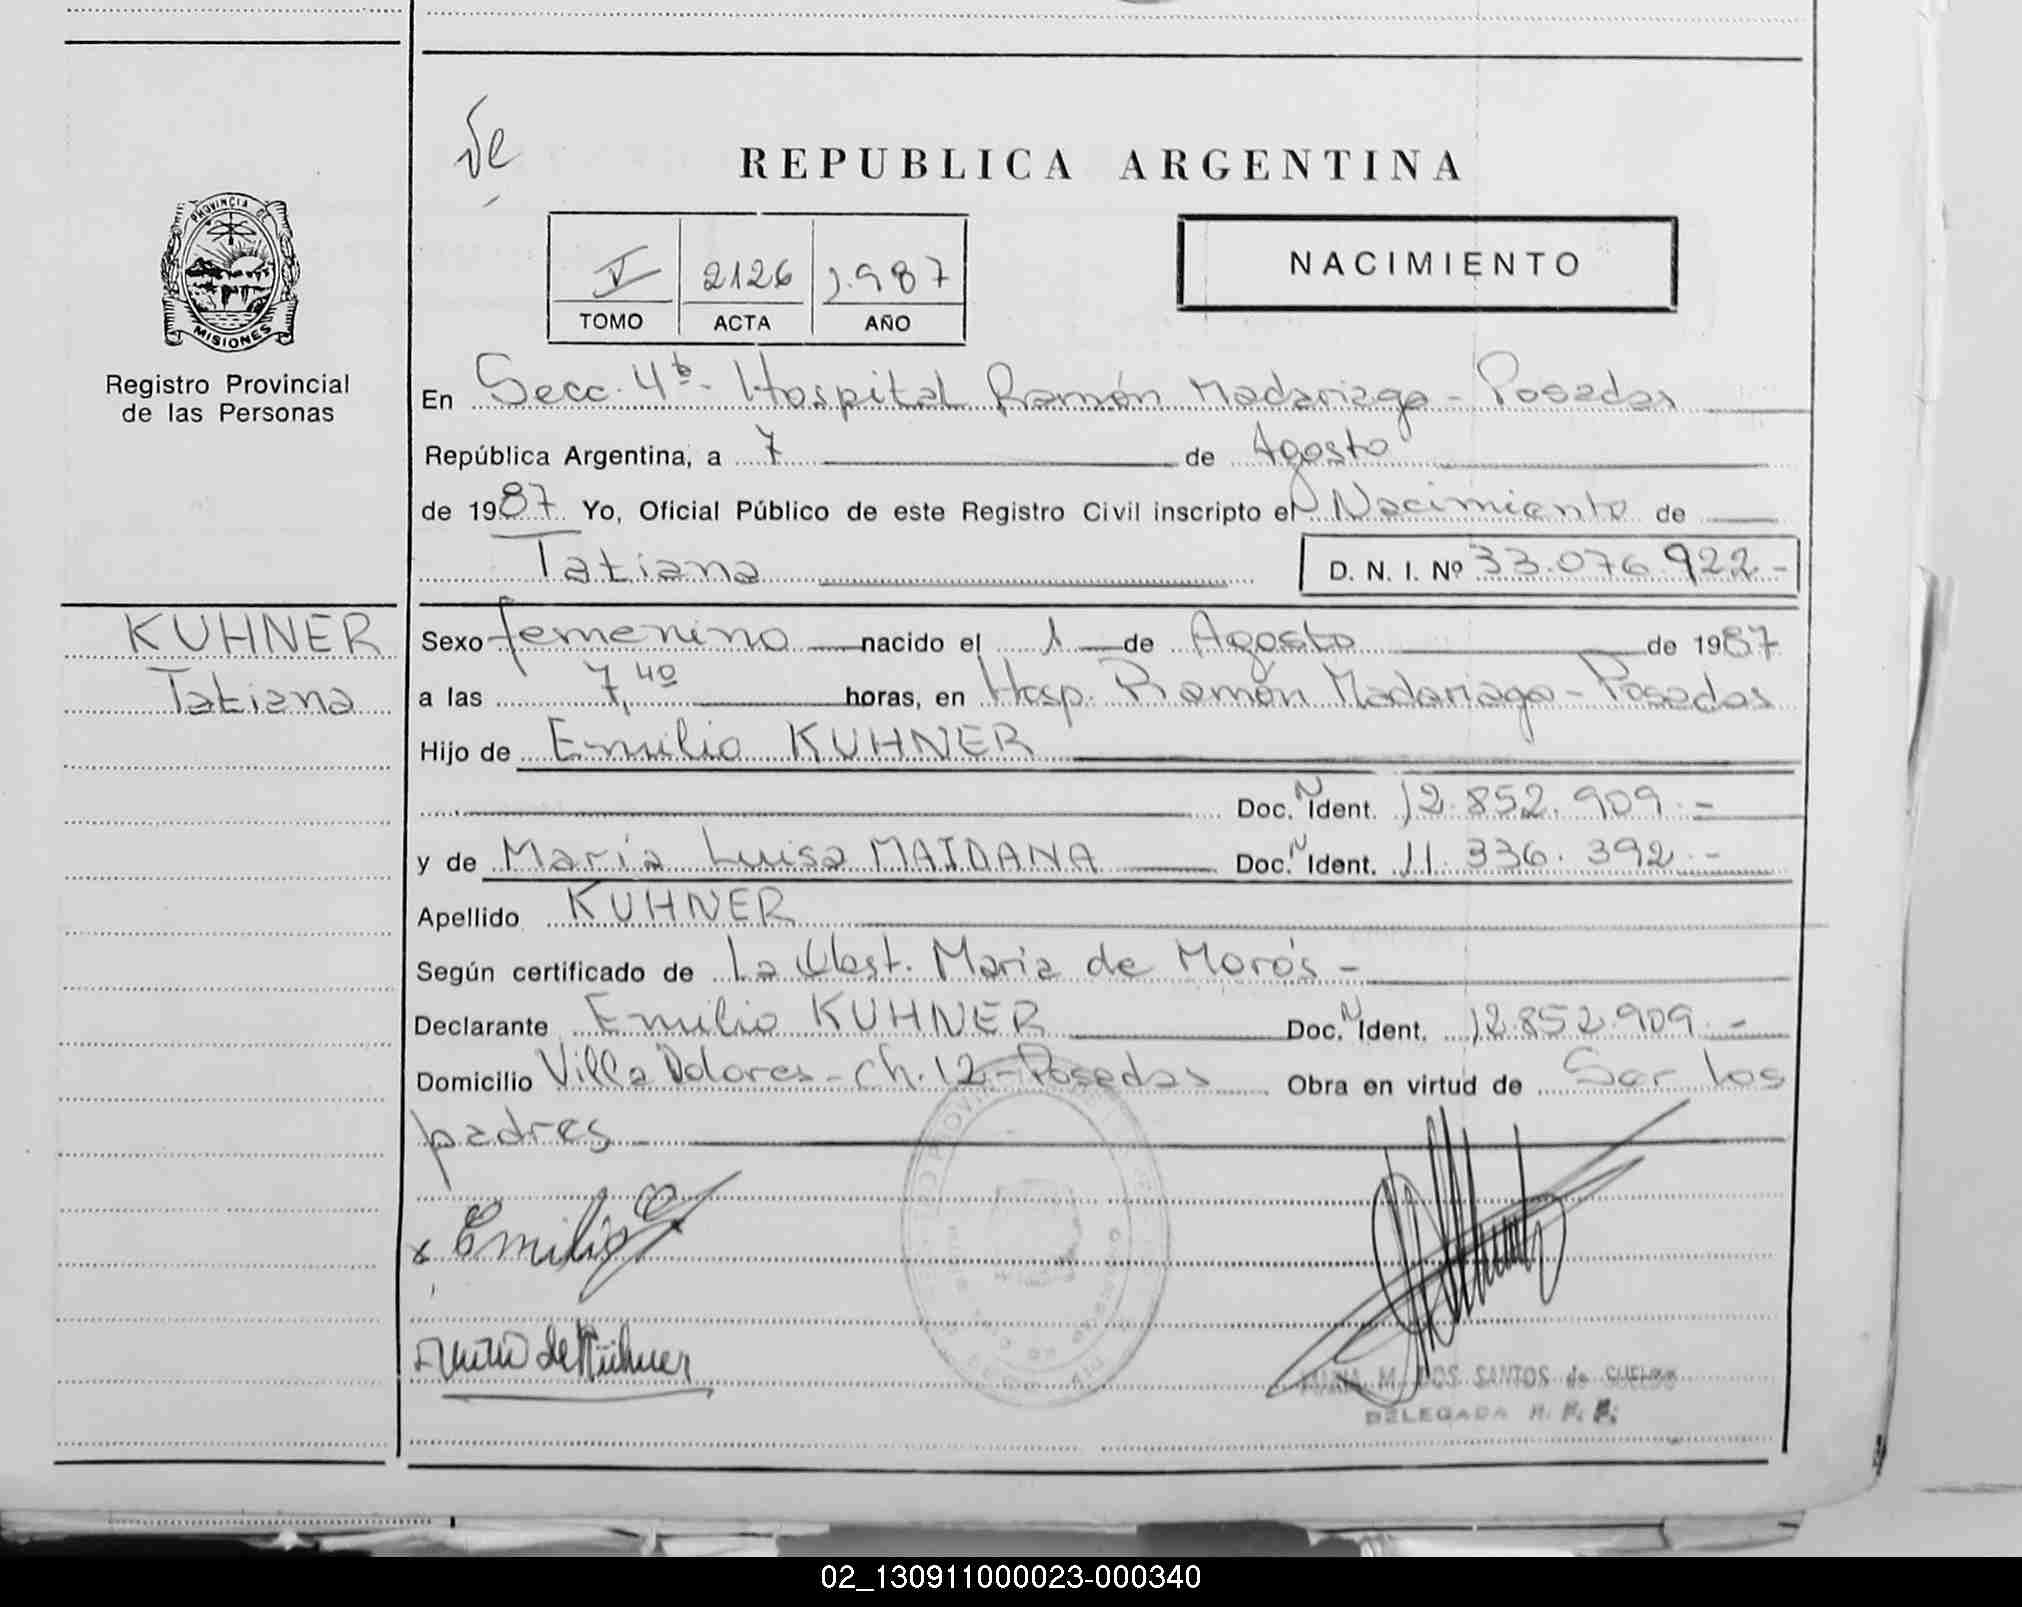 REPUBLICA ARGENTINA
PROVINCIA DE
MISIONES
Registro Provincial
de las Personas
V 2126 1.987
TOMO ACTA AÑO
NACIMIENTO
En Secc. 4ta - Hospital Ramón Madariaga - Posadas
República Argentina, a 7 de Agosto
de 1987 Yo, Oficial Público de este Registro Civil inscripto el Nacimiento de
Tatiana D. N. I. Nº 33.076.922.-
KUHNER
Tatiana
Sexo femenino nacido el 1 de Agosto de 1987
a las 7,40 horas, en Hosp. Ramón Madariaga - Posadas
Hijo de Emilio KUHNER
Doc. N Ident. 12.852.909.-
y de María Luisa MAIDANA Doc. N Ident. 11.336.392.-
Apellido KUHNER
Según certificado de La Obst. María de Morós -
Declarante Emilio KUHNER Doc. N Ident. 12.852.909.-
Domicilio Villa Dolores - Ch. 12 - Posadas Obra en virtud de Ser los
padres
Emilio
de Kühner
M. DOS SANTOS de SUELDO
DELEGADA R. P. P.
02_130911000023-000340